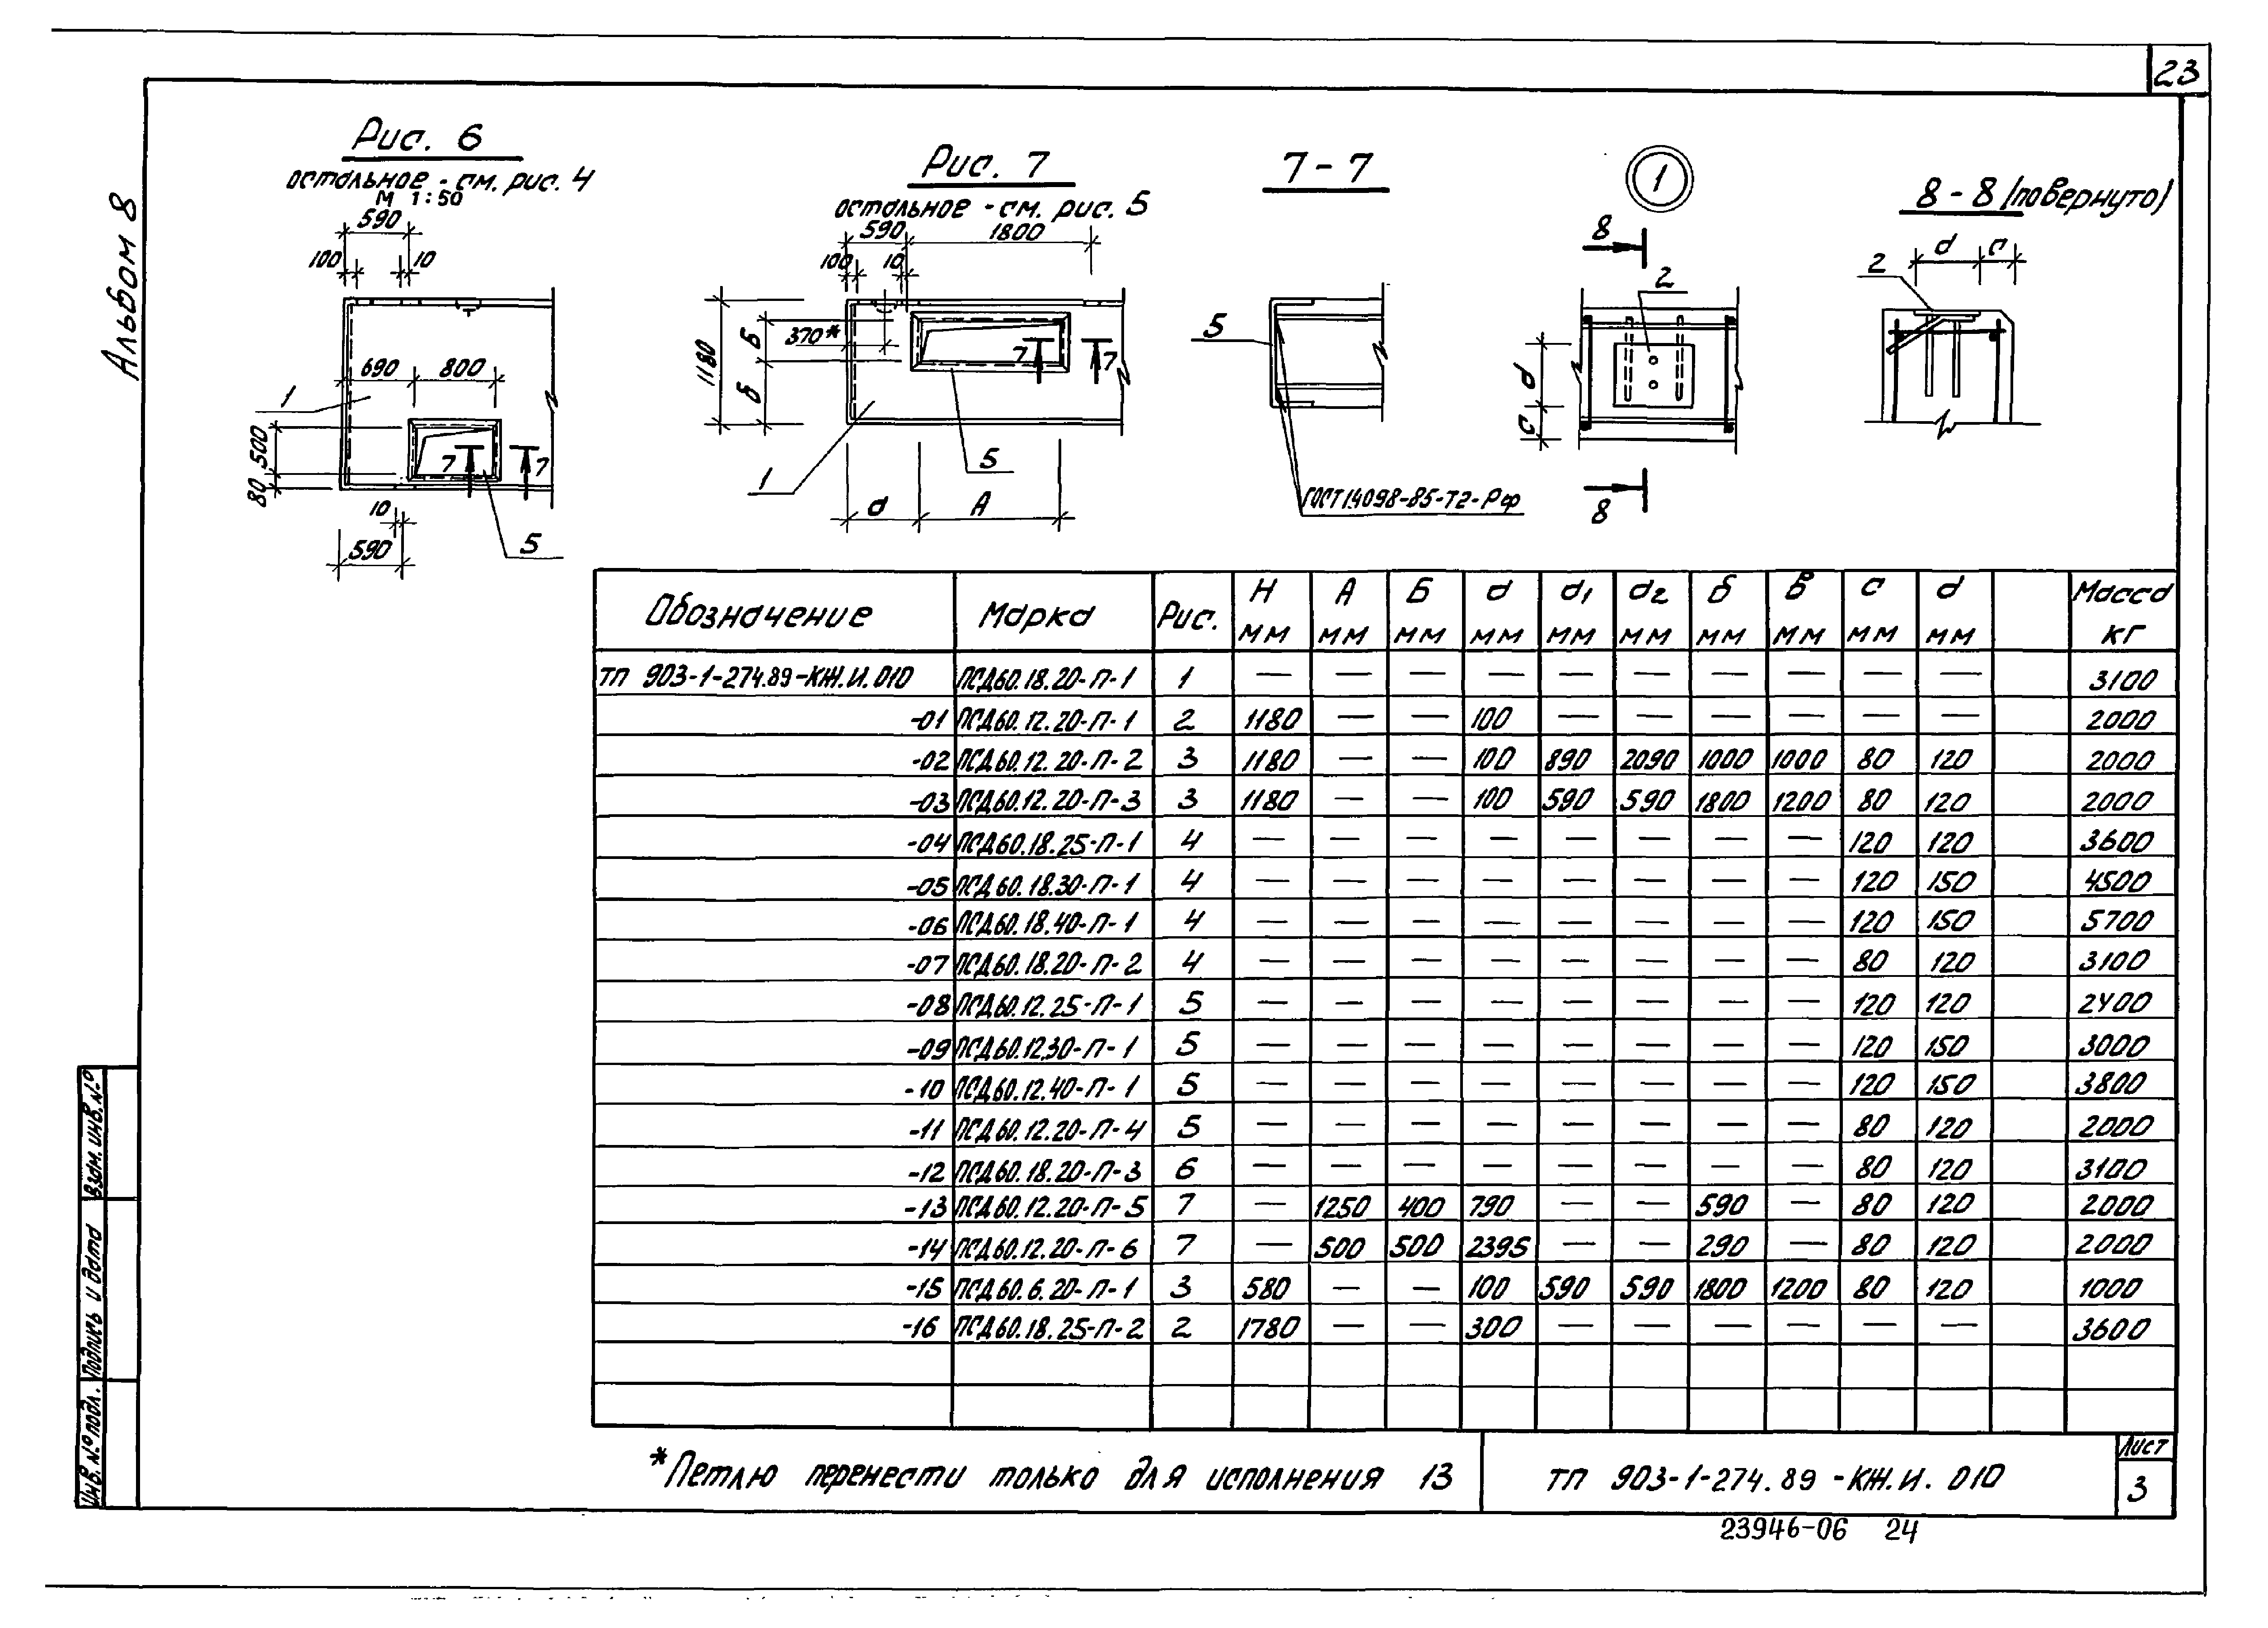 23
Альбом 8
Рис. 6
остальное - см. рис. 4
М 1:50
590
100
10
690
800
1
500
80
7
7
10
590
5
Рис. 7
остальное - см. рис. 5
590
1800
100
10
1180
Б
б
370*
7
7
5
1
а
А
7-7
5
ГОСТ14098-85-Т2-Рф
1
8
2
d
c
8
8-8 (повернуто)
d
c
2
Обозначение | Марка | Рис. | Н мм | А мм | Б мм | а мм | а1 мм | а2 мм | б мм | в мм | с мм | d мм | Масса кг
ТП 903-1-274.89-КЖ.И.010 | ПСД60.18.20-П-1 | 1 | — | — | — | — | — | — | — | — | — | — | 3100
-01 | ПСД60.12.20-П-1 | 2 | 1180 | — | — | 100 | — | — | — | — | — | — | 2000
-02 | ПСД60.12.20-П-2 | 3 | 1180 | — | — | 100 | 890 | 2090 | 1000 | 1000 | 80 | 120 | 2000
-03 | ПСД60.12.20-П-3 | 3 | 1180 | — | — | 100 | 590 | 590 | 1800 | 1200 | 80 | 120 | 2000
-04 | ПСД60.18.25-П-1 | 4 | — | — | — | — | — | — | — | — | 120 | 120 | 3600
-05 | ПСД60.18.30-П-1 | 4 | — | — | — | — | — | — | — | — | 120 | 150 | 4500
-06 | ПСД60.18.40-П-1 | 4 | — | — | — | — | — | — | — | — | 120 | 150 | 5700
-07 | ПСД60.18.20-П-2 | 4 | — | — | — | — | — | — | — | — | 80 | 120 | 3100
-08 | ПСД60.12.25-П-1 | 5 | — | — | — | — | — | — | — | — | 120 | 120 | 2400
-09 | ПСД60.12.30-П-1 | 5 | — | — | — | — | — | — | — | — | 120 | 150 | 3000
-10 | ПСД60.12.40-П-1 | 5 | — | — | — | — | — | — | — | — | 120 | 150 | 3800
-11 | ПСД60.12.20-П-4 | 5 | — | — | — | — | — | — | — | — | 80 | 120 | 2000
-12 | ПСД60.18.20-П-3 | 6 | — | — | — | — | — | — | — | — | 80 | 120 | 3100
-13 | ПСД60.12.20-П-5 | 7 | — | 1250 | 400 | 790 | — | — | 590 | — | 80 | 120 | 2000
-14 | ПСД60.12.20-П-6 | 7 | — | 500 | 500 | 2395 | — | — | 290 | — | 80 | 120 | 2000
-15 | ПСД60.6.20-П-1 | 3 | 580 | — | — | 100 | 590 | 590 | 1800 | 1200 | 80 | 120 | 1000
-16 | ПСД60.18.25-П-2 | 2 | 1780 | — | — | 300 | — | — | — | — | — | — | 3600
*Петлю перенести только для исполнения 13
ТП 903-1-274.89-КЖ.И.010
Лист
3
23946-06 24
Взам. инв. №
Подпись и дата
Инв. № подл.